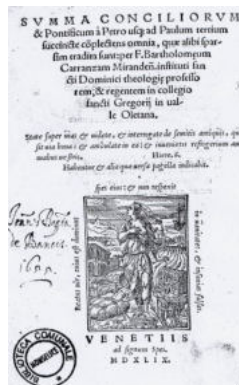 SVMMA CONCILIORVM
& Pontificum à Petro usq; ad Paulum tertium
succincte cõplectens omnia, quæ alibi spar-
sim tradita sunt: per F. Bartholomęum
Carranzam Miranden̄. instituti san
cti Dominici theologię professo
rem, & regentem in collegio
sancti Gregorij in ual-
le Oletana.
State super uias & uidete, & interrogate de semitis antiquis, quæ
sit uia bona: & ambulate in ea: & inuenietis refrigerium ani
mabus uestris. Hiere. 6.
Habentur & alia quæ uersa pagella indicabit.
spes eius: & non respexit
Beatus uir, cuius est domini
in uanitates, & insanias falsas.
Joann: Bapt:
de
1699.
BIBLIOTECA COMUNALE
VENETIIS
ad signum Spei.
MDXLIX.